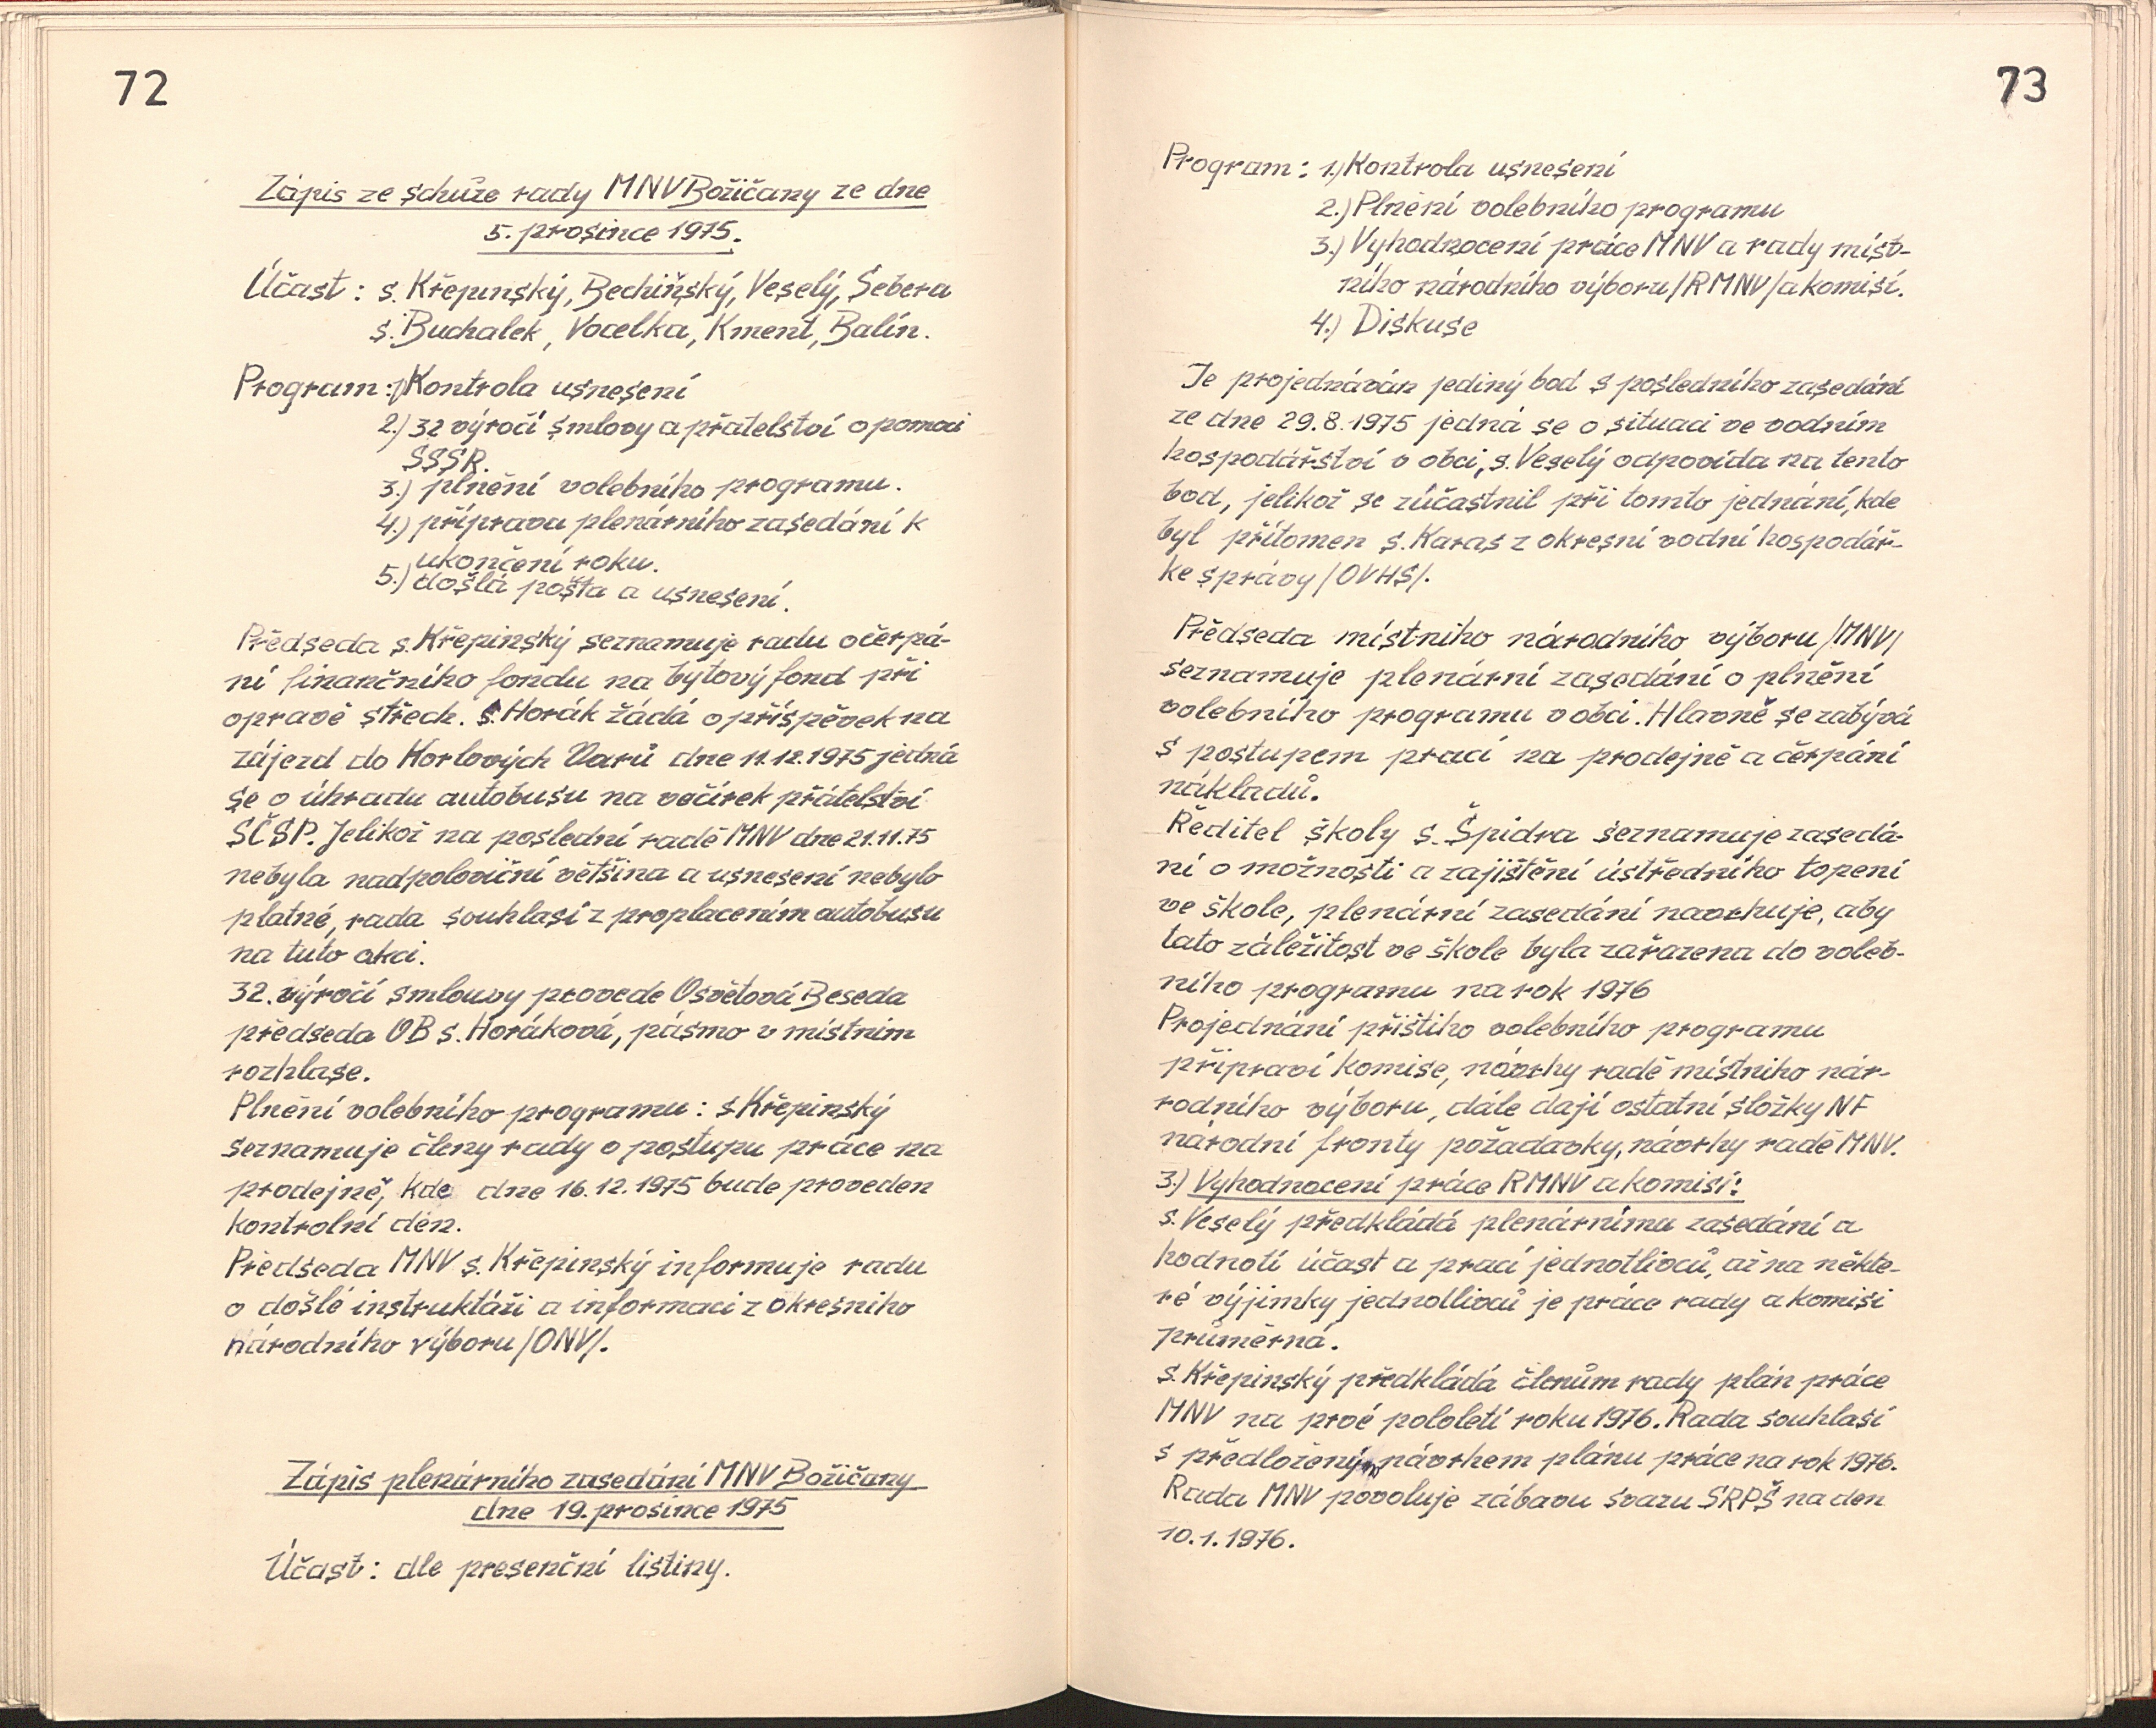 72
Zápis ze schůze rady MNV Božičany ze dne
5. prosince 1975.
Účast: s. Křepinský, Bechiňský, Veselý, Šebera
s. Buchalek, Vocelka, Kment, Balín.
Program: 1) Kontrola usnesení
2.) 32 výročí smlovy a přátelství o pomoci
SSSR.
3.) plnění volebního programu.
4.) příprava plenárního zasedání k
ukončení roku.
5.) došlá pošta a usnesení.
Předseda s. Křepinský seznamuje radu o čerpá-
ní finančního fondu na bytový fond při
opravě střech. s. Horák žádá o příspěvek na
zájezd do Karlových Varů dne 11.12.1975 jedná
se o úhradu autobusu na večírek přátelství
SČSP. Jelikož na poslední radě MNV dne 21.11.75
nebyla nadpoloviční většina a usnesení nebylo
platné, rada souhlasí z proplacením autobusu
na tuto akci.
32. výročí smlouvy provede Osvětová Beseda
předseda OB s. Horáková, pásmo v místním
rozhlase.
Plnění volebního programu: s Křepinský
seznamuje členy rady o postupu práce na
prodejně, kde dne 16.12.1975 bude proveden
kontrolní den.
Předseda MNV s. Křepinský informuje radu
o došlé instruktáži a informaci z okresního
národního výboru /ONV/.
Zápis plenárního zasedání MNV Božičany
dne 19. prosince 1975
Účast: dle presenční listiny.
73
Program: 1.) Kontrola usnesení
2.) Plnění volebního programu
3.) Vyhodnocení práce MNV a rady míst-
ního národního výboru /RMNV/ a komisí.
4.) Diskuse
Je projednáván jediný bod s posledního zasedání
ze dne 29.8.1975 jedná se o situaci ve vodním
hospodářství v obci, s. Veselý odpovídá na tento
bod, jelikož se zúčastnil při tomto jednání, kde
byl přítomen s. Karas z okresní vodní hospodář-
ke správy /OVHS/.
Předseda místního národního výboru /MNV/
seznamuje plenární zasedání o plnění
volebního programu v obci. Hlavně se zabývá
s postupem prací na prodejně a čerpání
nákladů.
Ředitel školy s. Špidra seznamuje zasedá-
ní o možnosti a zajištění ústředního topení
ve škole, plenární zasedání navrhuje, aby
tato záležitost ve škole byla zařazena do voleb-
ního programu na rok 1976
Projednání příštího volebního programu
připraví komise, návrhy radě místního nár-
rodního výboru, dále dají ostatní složky NF
národní fronty požadavky, návrhy radě MNV.
3.) Vyhodnocení práce RMNV a komisí:
s. Veselý předkládá plenárnímu zasedání a
hodnotí účast a prací jednotlivců, až na někte-
ré výjimky jednotlivců je práce rady a komisi
průměrná.
s. Křepinský předkládá členům rady plán práce
MNV na prvé pololetí roku 1976. Rada souhlasí
s předloženým návrhem plánu práce na rok 1976.
Rada MNV povoluje zábavu svazu SRPŠ na den
10.1.1976.